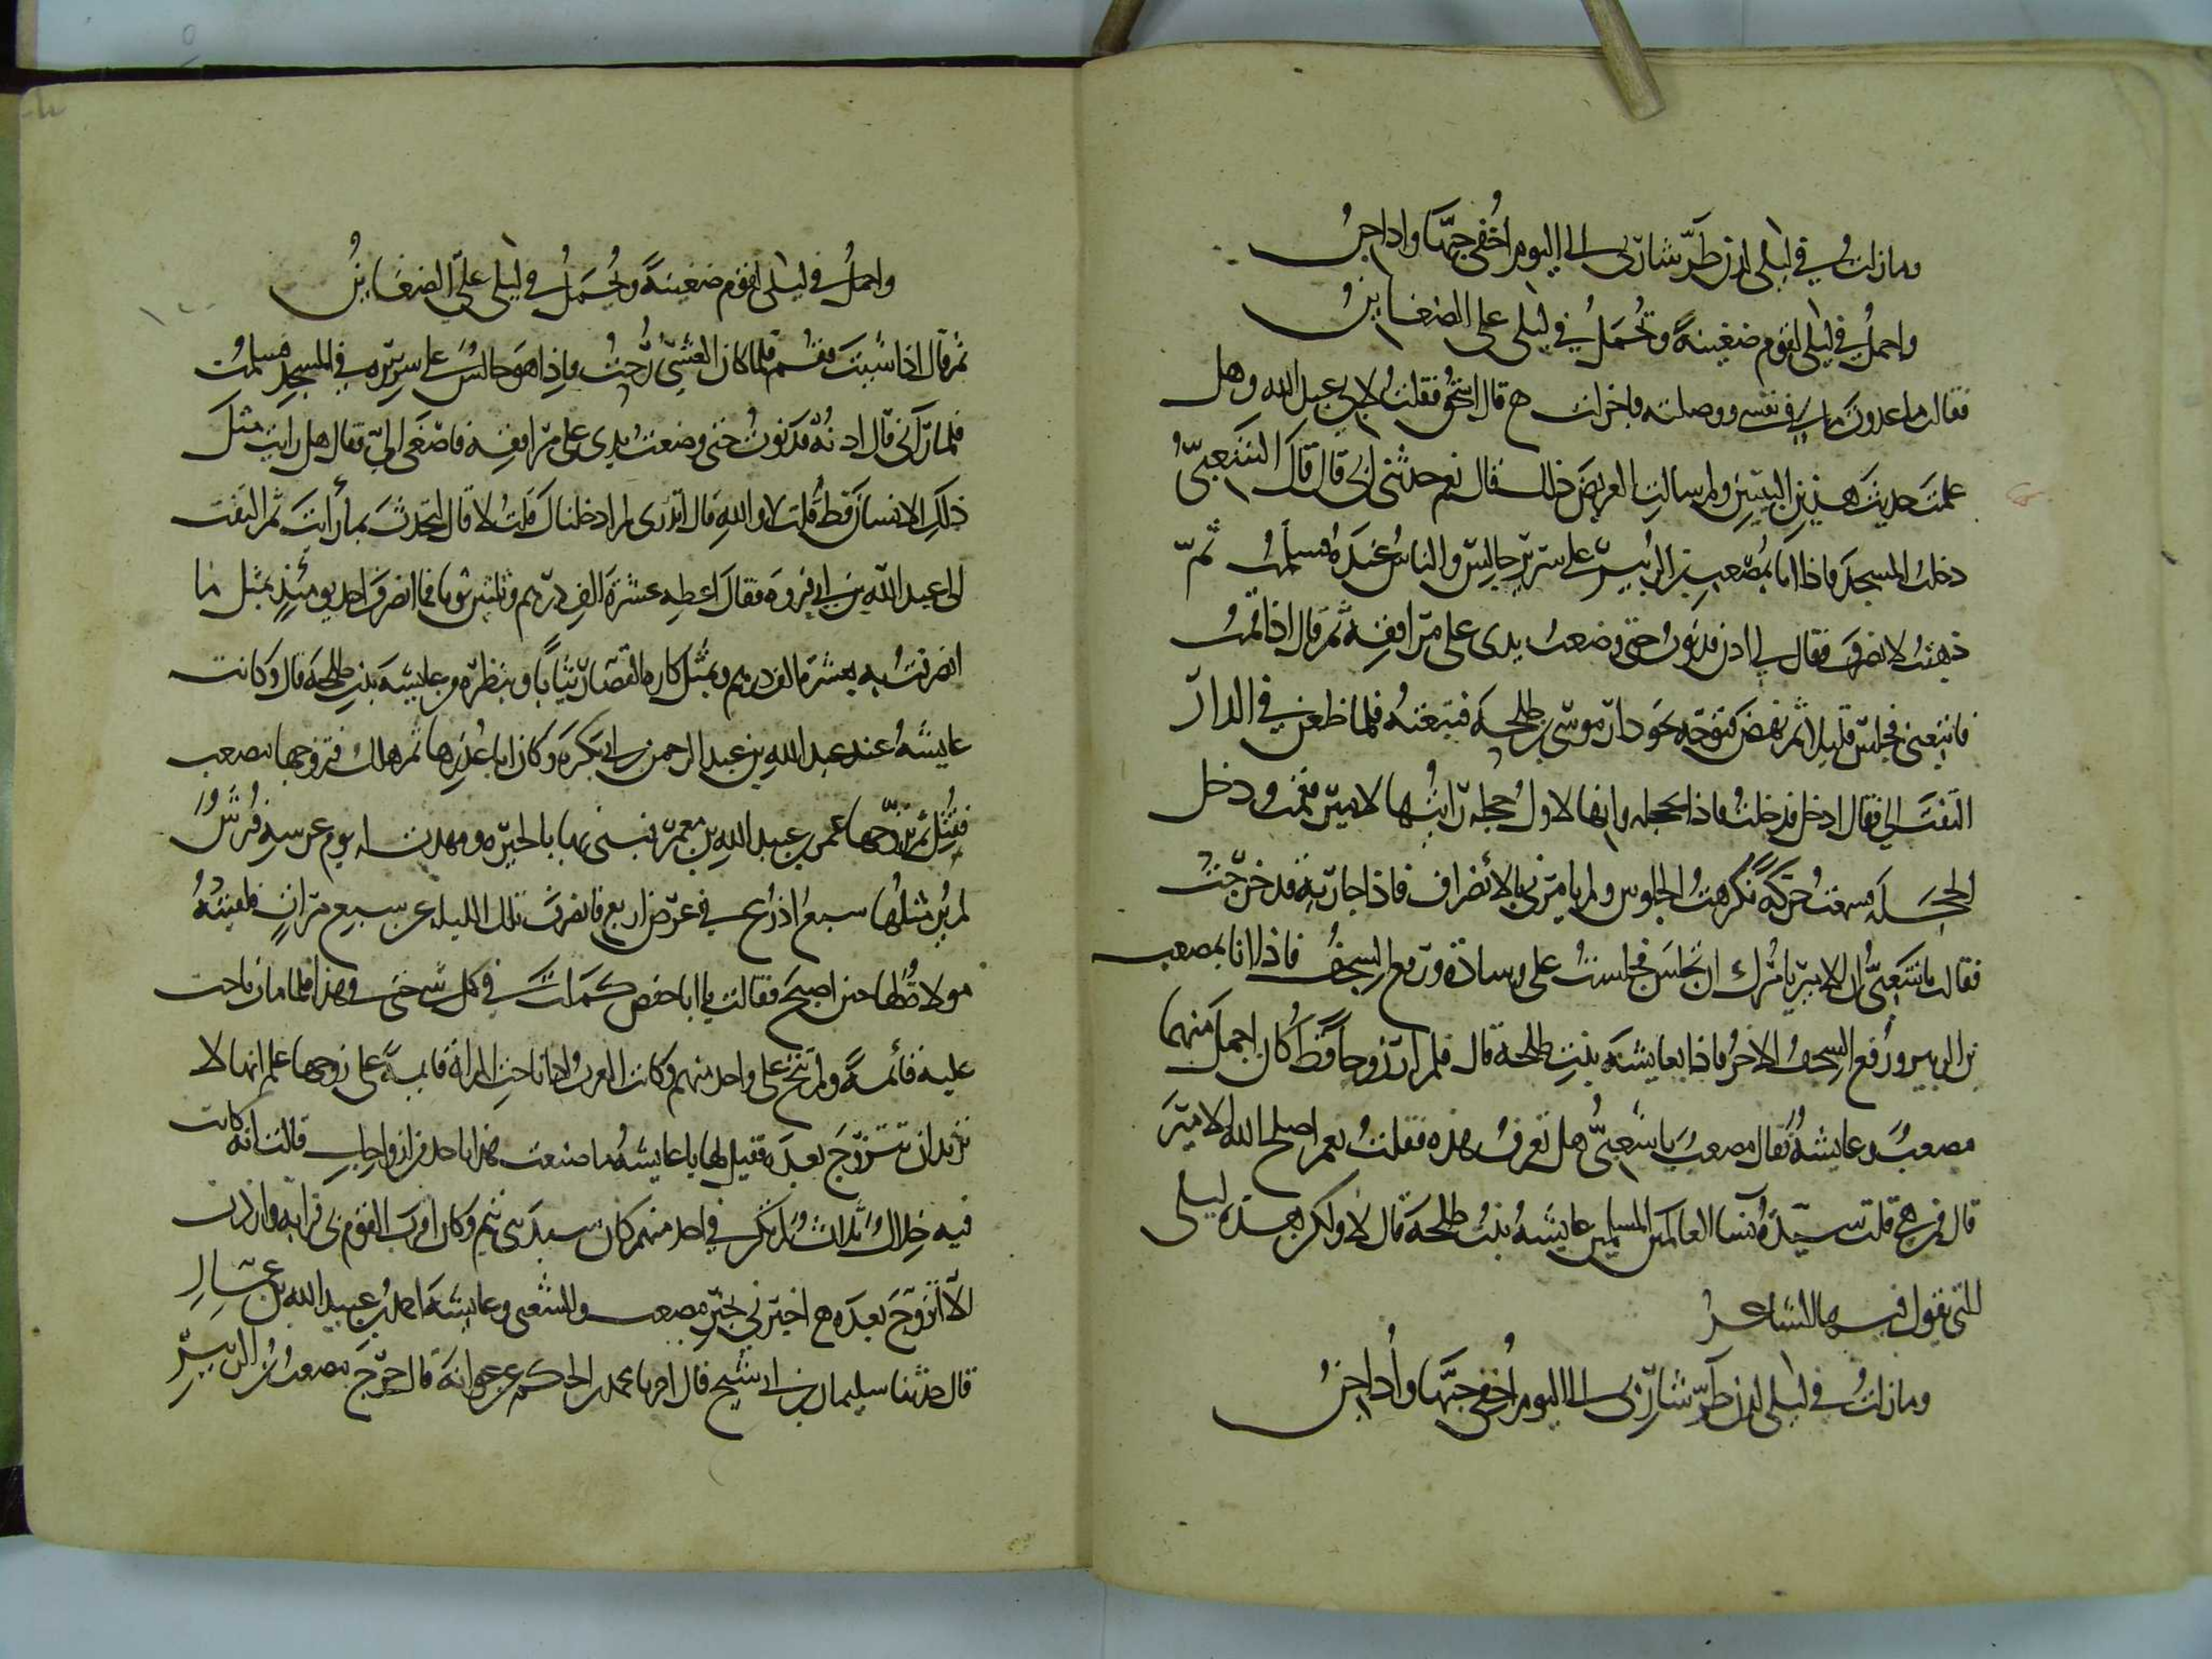 وما زلت في ليلى لدن طرّ شاربى الى اليوم اُخفى حبّها واداجنُ
واحملُ في ليلى لقوم ضغينةً وتُحملُ في ليلى على الضغاينُ
فقال ما عدوت ما في نفسه ووصلته واخزلت ح قال اسحق فقلت لابى عبد الله وهل
علمت حديث هذين البيتين ولم سالت الغريض ذلك قال نعم حدثنى ابى قال قال الشعبىّ
دخلت المسجد فاذا انا بمُصعب بن الزبير على سرير جالس والناس عنده فسلمت ثمّ
ذهبتُ لانصرف فقال لي ادن فدنوت حتى وضعت يدى على مرافقه ثم قال اذا قمتُ
فاتبعنى فجلس قليلا ثم نهض فتوجّه نحو دار موسى بن طلحة فتبعته فلما ظعن في الدار
التفت الي فقال ادخل فدخلتُ فاذا بحجلة وانها لاول حجلة رايتُها لامير فقمت ودخل
الحجلة فسمعتُ حركةً فكرهتُ الجلوس ولم يامرنى بالانصراف فاذا جارية قد خرجت
فقالت يا شعبىُّ ان الامير يامُرك ان تجلس فجلستُ على وسادة ورفع السجفُ فاذا انا بمصعب
بن الزبير ورُفع السجفُ الاخر فاذا بعايشة بنت طلحة قال فلم ار زوجاً قط كان اجمل منهما
مصعبُ وعايشةُ فقال مصعب يا شعبىُّ هل تعرف هذه فقلتُ نعم اصلح الله الامير
قال ومن هى قلت سيّدةُ نسا العالمين المسلمين عايشةُ بنتُ طلحة قال لا ولكن هذه ليلى
التي يقول فيها الشاعرُ
وما زلتُ في ليلى لدن طرّ شاربى الى اليوم اُخفى حبّها واُداجنُ
واحملُ في ليلى لقوم ضغينةً وتُحملُ في ليلى علىّ الضغاينُ
ثم قال اذا شئت فقُم فلما كان العشىّ رُحتُ واذا هو جالسُ على سريره في المسجد فسلمتُ
فلما رآنى قال ادنُه فدنوتُ حتى وضعتُ يدى على مرافقه فاصغى الىّ فقال هل رايت مثل
ذلك الانسان قط قلت لا والله قال اتدرى لم ادخلناك قلتُ لا قال لتحدث بما رأيت ثم التفت
الى عبد الله بن ابى فروة فقال اعطه عشرة الف درهم وثلثين ثوبا فما انصرف احد يومئذٍ بمثل ما
انصرفتُ به بعشرة الف درهم وبمثل كارة القصّار ثياباً وبنظرة من عايشة بنت طلحة قال وكانت
عايشةُ عند عبد الله بن عبد الرحمن بن ابى بكرة وكان ابا عُذرها ثم هلك فتزوجها مصعب
فقُتِل ثم تزوّجها عمر بن عبيد الله بن معمر فبنى بها بالحيرة ومهدت له يوم عرسه فُرُشُ
لم يُر مثلُها سبعُ اذرُع في عرض اربع فانصرف تلك الليلة عن سبع مرات فلقيتهُ
مولاةُ لها حين اصبح فقالت يا ابا حفص كملت في كل شى حتى فى هذا فلما مات ناحت
عليه قائمةً ولم تنُح على واحد منهم وكانت العرب اذا ناحت المراة قايمةً على زوجها علم انها لا
تريد ان تتزوّج بعده فقيل لها يا عايشهُ ما صنعت هذا باحد من ازواجك قالت انه كانت
فيه خلالُ ثلاثُ لم تكن في احد منهم كان سيد بنى تيم وكان اقرب القوم بى قرابة واردت
الا اتزوّج بعده ح اخبرني بخبر مصعب والشعبى وعايشة احمد بن عبيد الله بن عمّارِ
قال حدثنا سليمان بن ابي شيخ قال اخبرنا محمد بن الحكم عن عوانة قال خرج مصعب بن الزبير